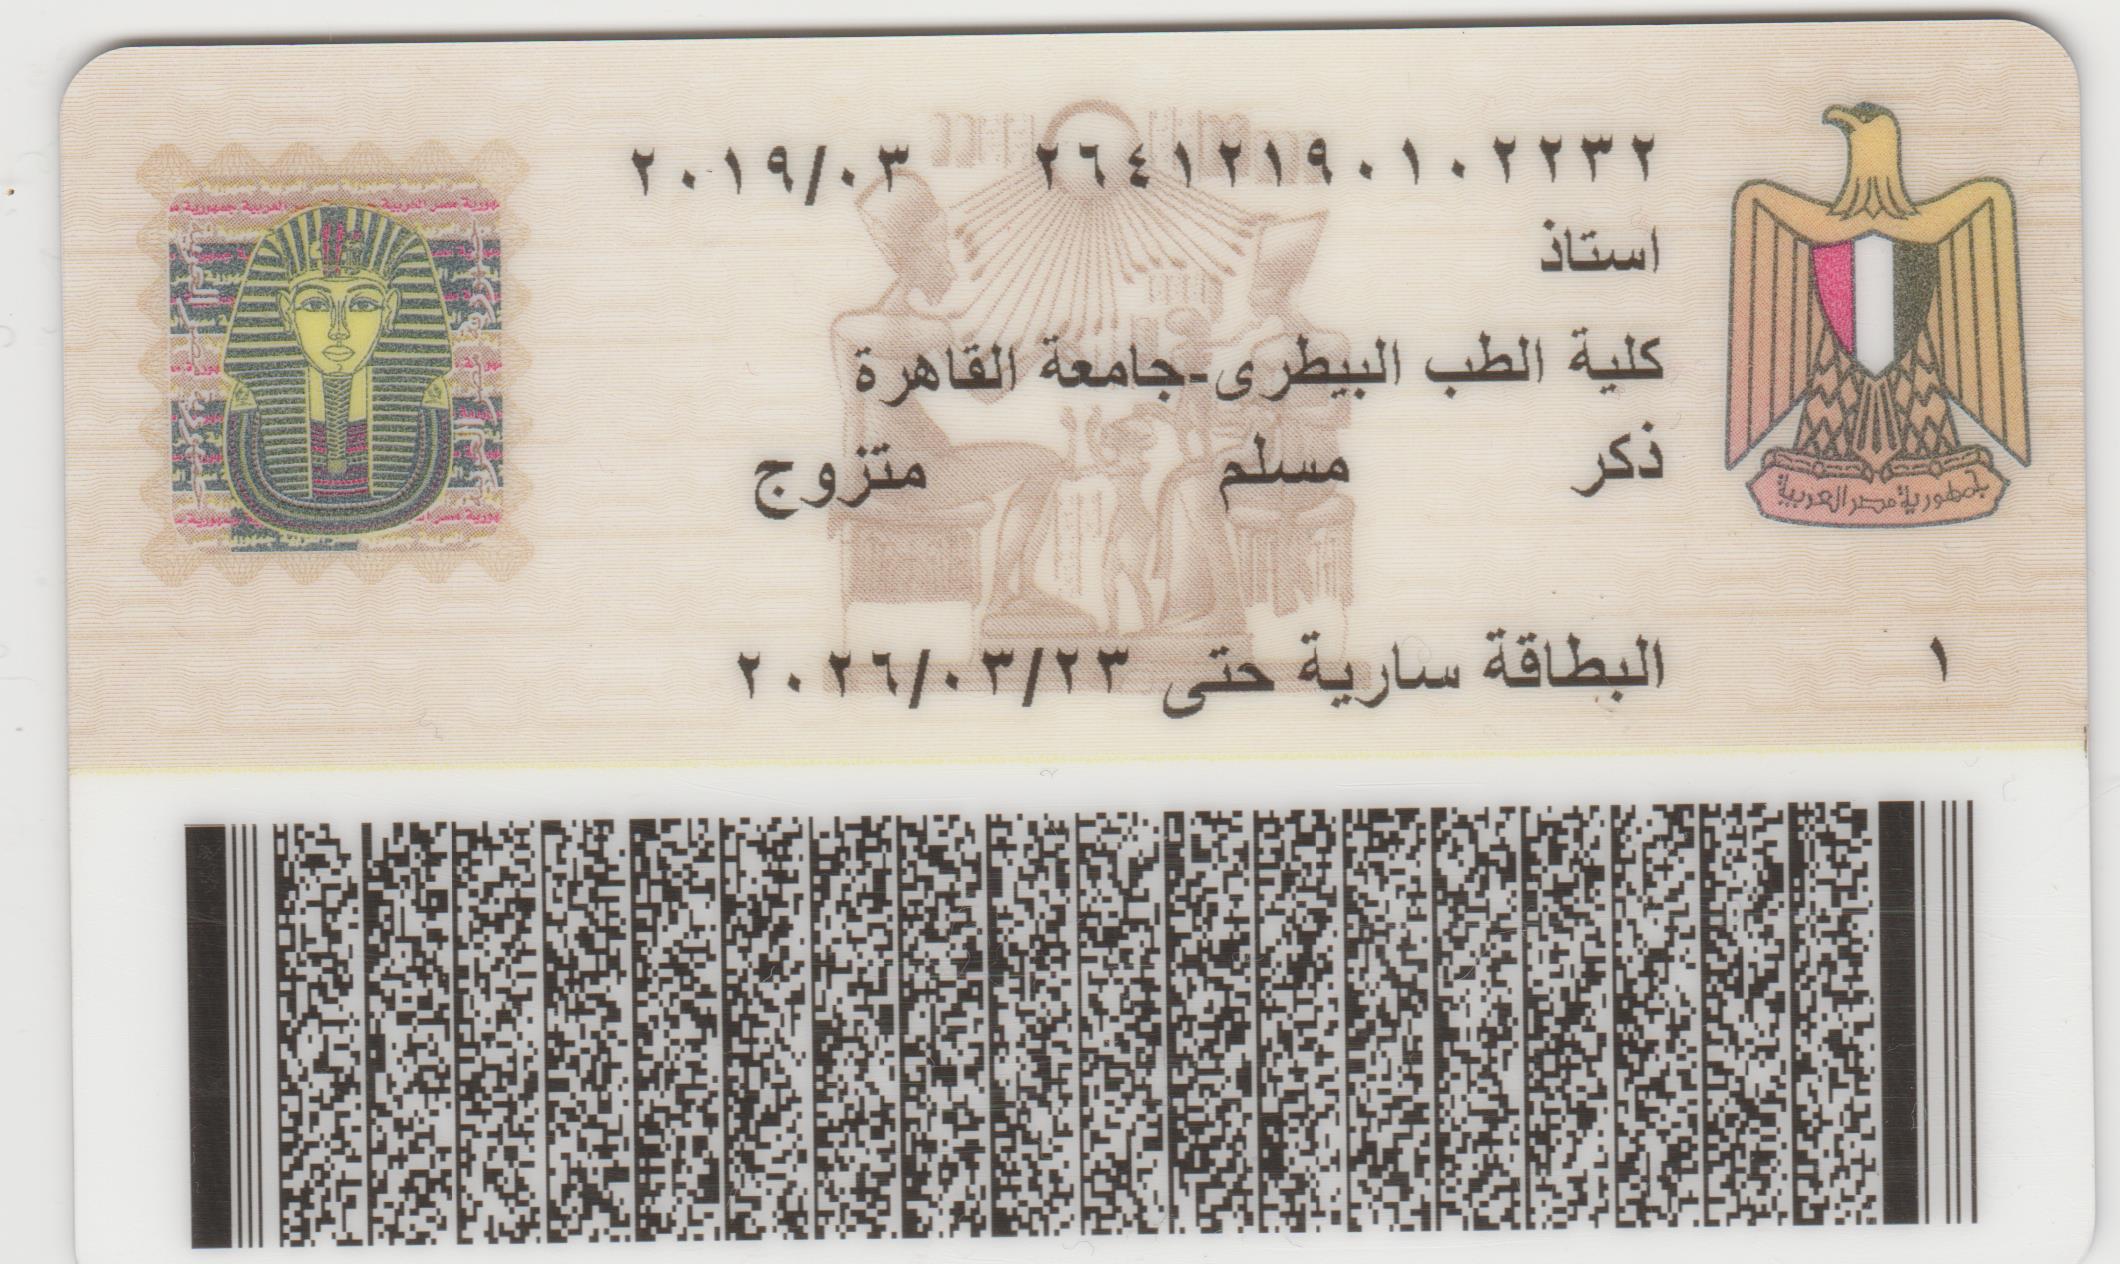 ٢٦٤١٢١٩٠١٠٢٢٣٢ ٢٠١٩/٠٣
استاذ
كلية الطب البيطرى-جامعة القاهرة
ذكر مسلم متزوج
البطاقة سارية حتى ٢٠٢٦/٠٣/٢٣
١
جمهورية مصر العربية